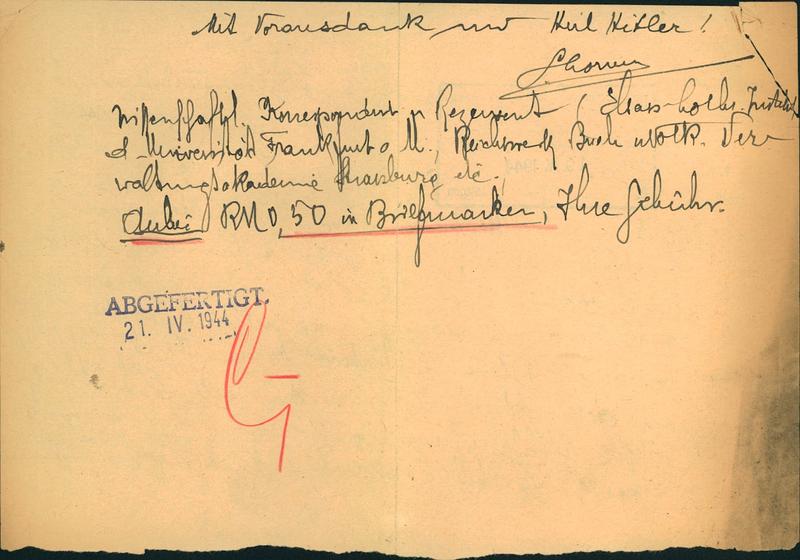 Mit Vorausdank und Heil Hitler!
Wissenschaftl. Korrespondent u. Rezensent (Elsass-Lothr. Institut
d. Universität Frankfurt a. M., Reichswerk Buch u. Volk. Ver-
waltungsakademie Strassburg etc.,
Anbei RM 0,50 in Briefmarken, Ihre Gebühr.
ABGEFERTIGT.
21. IV. 1944